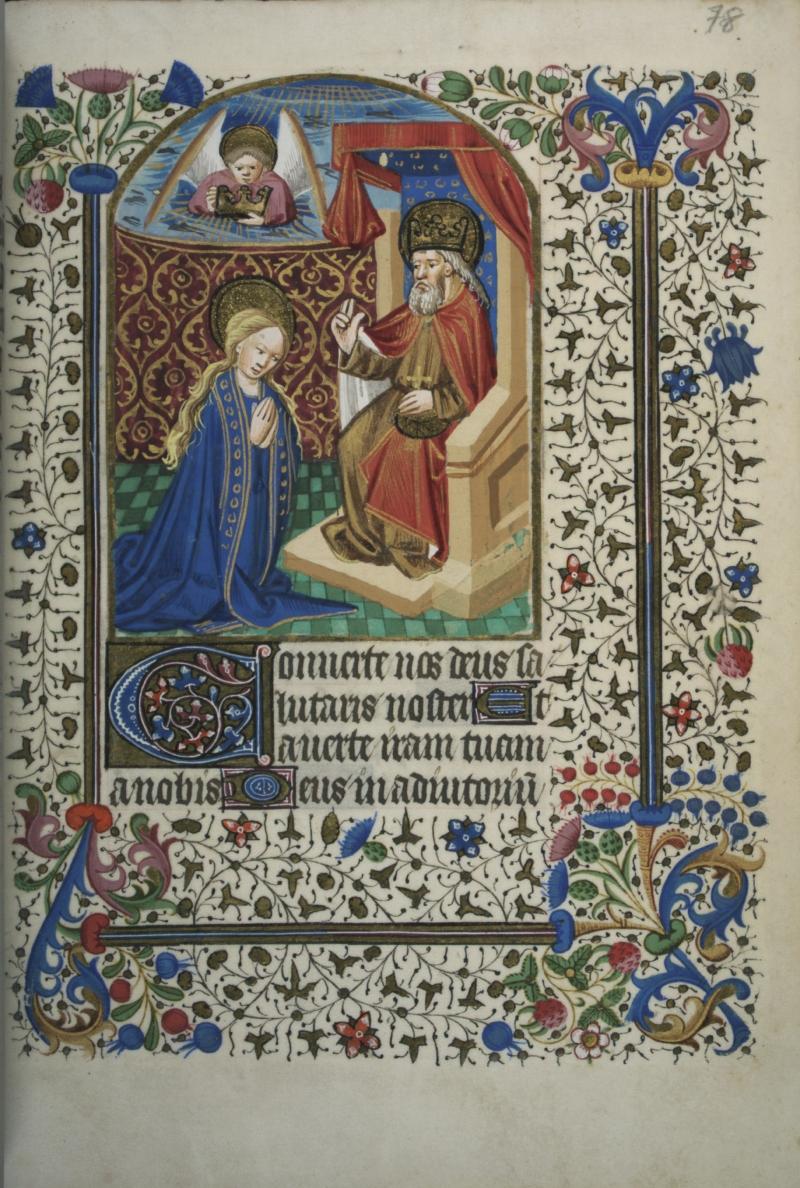 78
Conuerte nos deus sa
lutaris noster Et
auerte iram tuam
a nobis Deus in adiutoriū